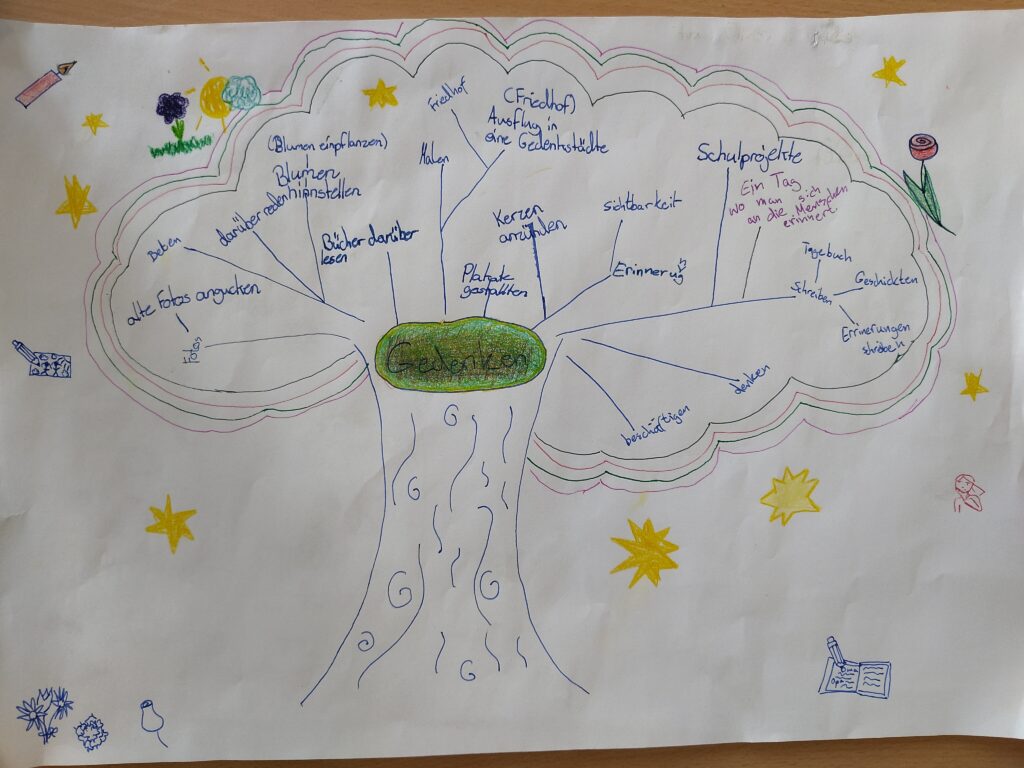 Gedenken
Fotos
alte Fotos angucken
Beten
darüber reden
(Blumen einpflanzen)
Blumen
hinstellen
Bücher darüber
lesen
Malen
Friedhof
(Friedhof)
Ausflug in
eine Gedenkstädte
Plakate
gestallten
Kerzen
anzünden
Sichtbarkeit
Erinnerung
Schulprojekte
Ein Tag
wo man sich
an die Menschen
erinnert
Tagebuch
Schreiben
Geschichten
Erinnerungen
schreiben
denken
beschäftigen